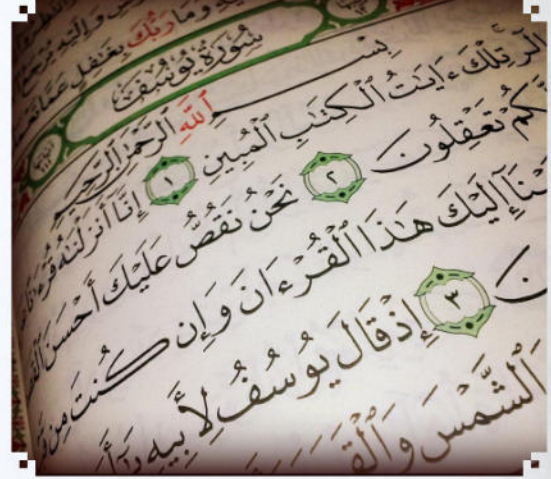 وَإِلَيْهِ يُرْجَعُ
وَمَا رَبُّكَ بِغَٰفِلٍ عَمَّا تَعْمَلُونَ
سُورَةُ يُوسُفَ
بِسْمِ ٱللَّهِ ٱلرَّحْمَٰنِ ٱلرَّحِيمِ
الٓر تِلْكَ ءَايَٰتُ ٱلْكِتَٰبِ ٱلْمُبِينِ ١ إِنَّآ أَنزَلْنَٰهُ قُرْءَٰنًا
لَّعَلَّكُمْ تَعْقِلُونَ ٢ نَحْنُ نَقُصُّ عَلَيْكَ أَحْسَنَ ٱلْقَصَصِ
أَوْحَيْنَآ إِلَيْكَ هَٰذَا ٱلْقُرْءَانَ وَإِن كُنتَ مِن
٣ إِذْ قَالَ يُوسُفُ لِأَبِيهِ
وَٱلشَّمْسَ وَٱلْقَمَرَ